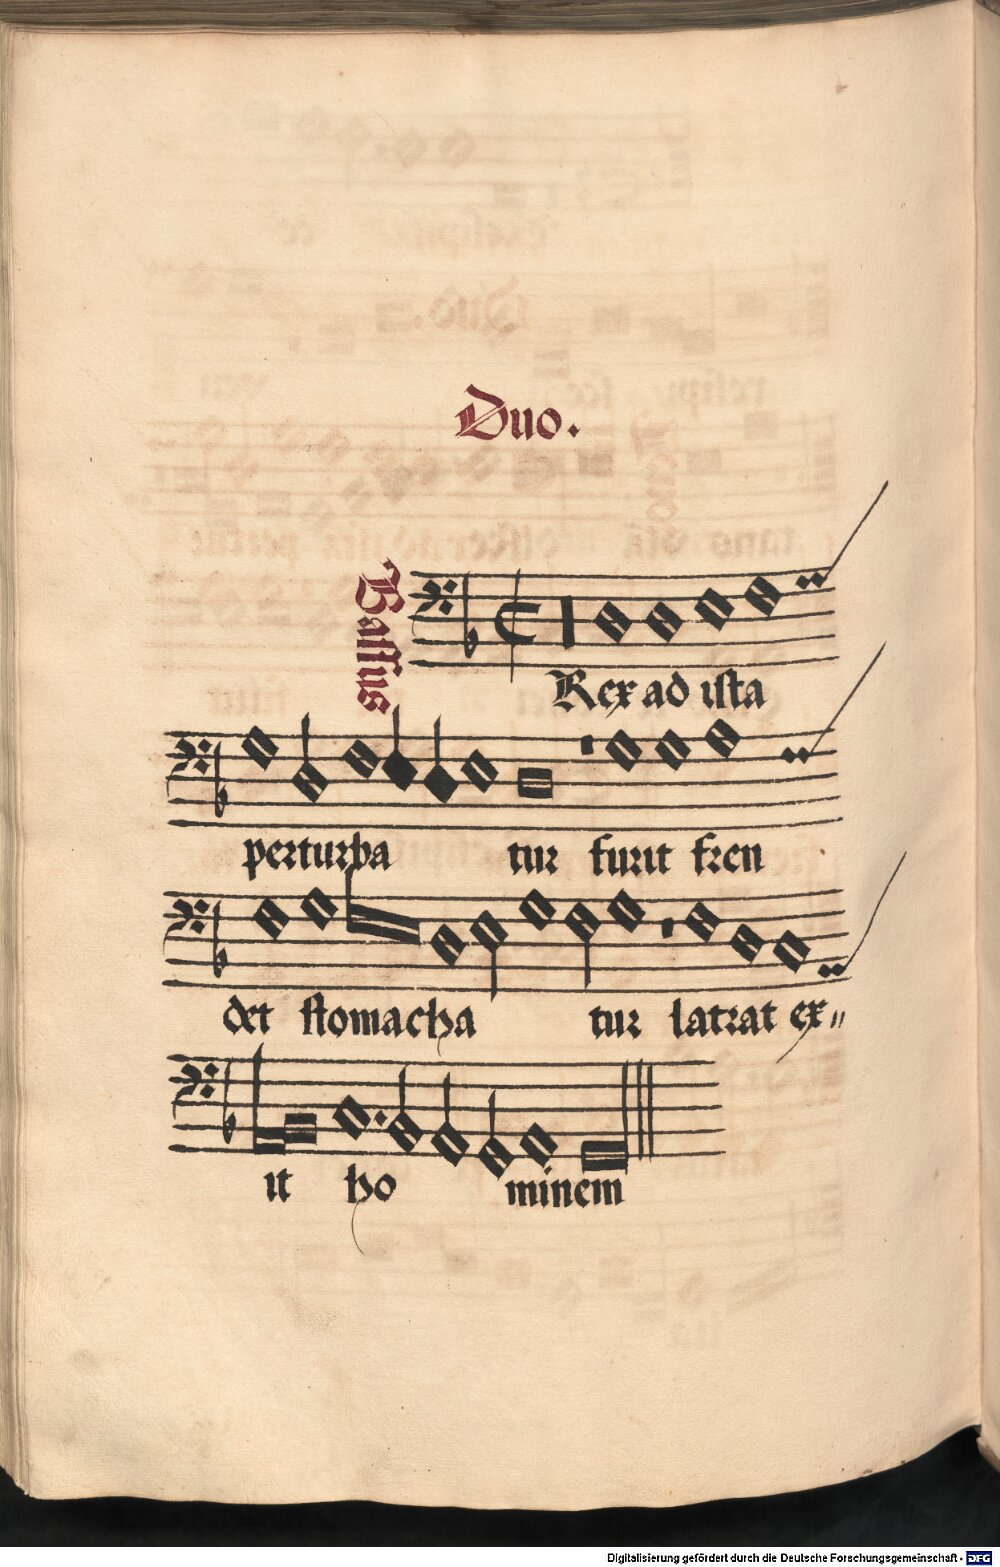 Duo.
Bassus
Rex ad ista
perturba tur furit fren
det stomacha tur latrat ex„
it ho minem
Digitalisierung gefördert durch die Deutsche Forschungsgemeinschaft - DFG